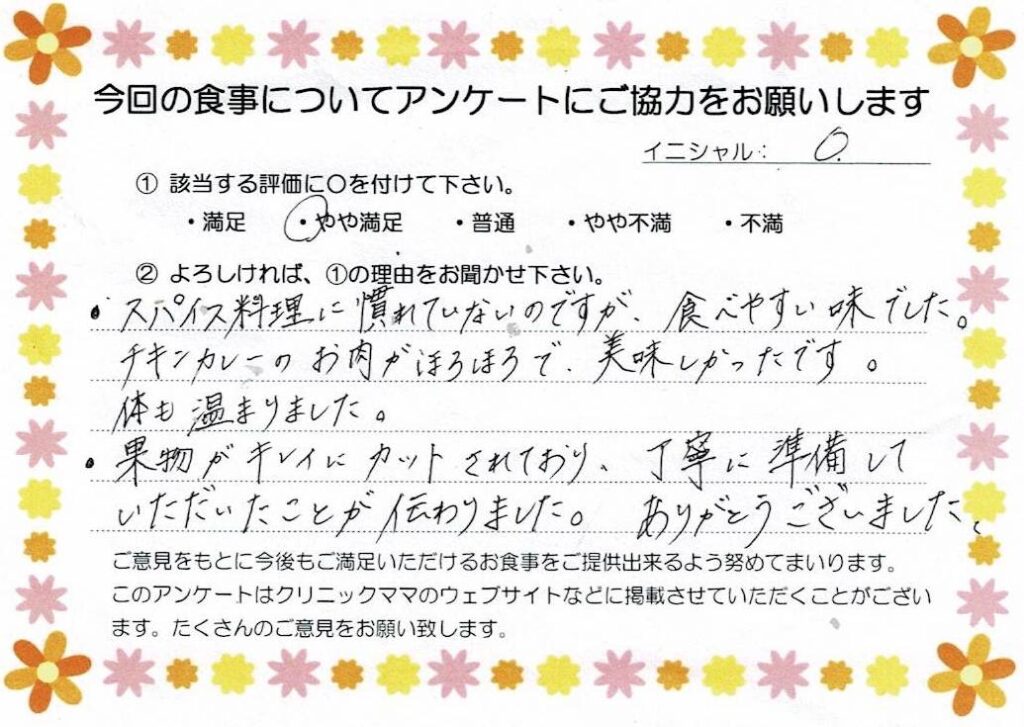 今回の食事についてアンケートにご協力をお願いします
イニシャル： O.
① 該当する評価に〇を付けて下さい。
・満足 ・やや満足 ・普通 ・やや不満 ・不満
② よろしければ、①の理由をお聞かせ下さい。
・スパイス料理に慣れていないのですが、食べやすい味でした。
チキンカレーのお肉がほろほろで、美味しかったです。
体も温まりました。
・果物がキレイにカットされており、丁寧に準備して
いただいたことが伝わりました。 ありがとうございました。
ご意見をもとに今後もご満足いただけるお食事をご提供出来るよう努めてまいります。
このアンケートはクリニックママのウェブサイトなどに掲載させていただくことがござい
ます。たくさんのご意見をお願い致します。